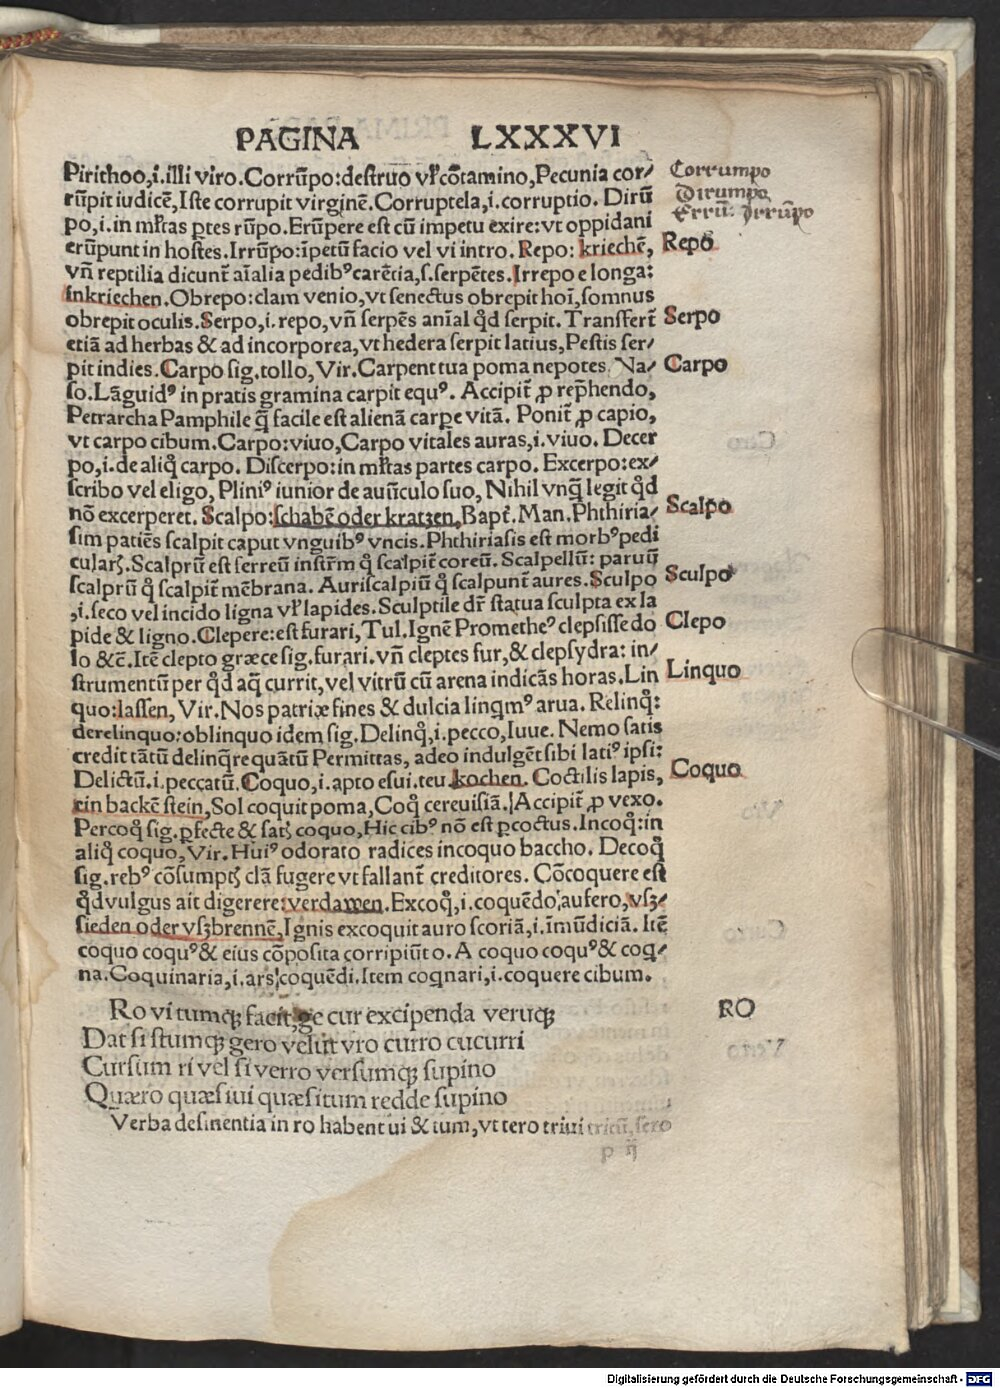 PAGINA LXXXVI
Pirithoo,i.illi viro.Corrūpo:destruo vƚ cōtamino,Pecunia cor⸗
rūpit iudicē,Iste corrupit virginē.Corruptela,i.corruptio. Dirū
po,i.in mƚtas ꝑtes rūpo.Erūpere est cū impetu exire:vt oppidani
erūpunt in hostes.Irrūpo:īpetū facio vel vi intro. Repo: kriechē,
vn̄ reptilia dicunt᷑ aīalia pedibꝰ carētia,s.serpētes. Irrepo e longa:
inkriechen.Obrepo:clam venio,vt senectus obrepit hoī,somnus
obrepit oculis.Serpo,i.repo,vn̄ serpēs anīal qd̄ serpit. Transfert᷑
etiā ad herbas & ad incorporea,vt hedera serpit latius,Pestis ser⸗
pit indies. Carpo sig.tollo, Vir.Carpent tua poma nepotes. Na⸗
so.Lāguidꝰ in pratis gramina carpit equꝰ. Accipit᷑ ꝓ rep̄hendo,
Petrarcha Pamphile q̄ facile est alienā carꝑe vitā. Ponit᷑ ꝓ capio,
vt carpo cibum.Carpo:viuo,Carpo vitales auras,i.viuo. Decer
po,i.de aliq̊ carpo. Discerpo:in mƚtas partes carpo. Excerpo:ex⸗
scribo vel eligo, Pliniꝰ iunior de auūculo suo, Nihil vnq̄ legit qd̄
nō excerperet. Scalpo:schabē oder kratzen,Bapt᷑.Man.Phthiria⸗
sim patiēs scalpit caput vnguibꝰ vncis.Phthiriasis est morbꝰ pedi
cularꝭ.Scalprū est ferreū instr̄m q̊ scalpit᷑ coreū. Scalpellū: paruū
scalprū q̊ scalpit᷑ mēbrana. Auriscalpiū q̊ scalpunt᷑ aures. Sculpo
,i.seco vel incido ligna vƚ lapides.Sculptile dr̄ statua sculpta ex la
pide & ligno. Clepere:est furari, Tul.Ignē Prometheꝰ clepsisse do
lo &c̄. Itē clepto græce sig.furari.vn̄ cleptes fur,& clepsydra: in⸗
strumentū per qd̄ aq̄ currit,vel vitrū cū arena indicās horas.Lin
quo:lassen, Vir.Nos patriæ fines & dulcia linqmꝰ arua. Relinq̊:
derelinquo:oblinquo idem sig. Delinq̊,i.pecco, Iuue. Nemo satis
credit tātū delinq̄re quātū Permittas, adeo indulgēt sibi latiꝰ ipsi:
Delictū.i.peccatū. Coquo,i.apto esui.teu.kochen. Coctilis lapis,
ein backē stein,Sol coquit poma,Coq̊ cereuisiā. Accipit᷑ ꝓ vexo.
Percoq̊ sig.ꝑfecte & satꝭ coquo,Hic cibꝰ nō est ꝑcoctus.Incoq̊:in
aliq̊ coquo,Vir. Huiꝰ odorato radices incoquo baccho. Decoq̊
sig.rebꝰ cōsumptꝭ clā fugere vt fallant᷑ creditores. Cōcoquere est
qd̄ vulgus ait digerere:verdawen. Excoq̊,i.coquēdo aufero,vsz⸗
sieden oder vszbrennē,Ignis excoquit auro scoriā,i.īmūdiciā. Itē
coquo coquꝰ & eius cōposita corripiūt o. A coquo coquꝰ & coq̄
na. Coquinaria,i.ars coquēdi.Item coqnari,i.coquere cibum.
Ro vi tumqꝫ facit,ge cur excipenda veruqꝫ
Dat si stumqꝫ gero velut vro curro cucurri
Cursum ri vel si verro versumqꝫ supino
Quæro quæsiui quæsitum redde supino
Verba desinentia in ro habent ui & tum,vt tero triui tritū, sero
p ij
Corrumpo
Dirumpo
Errū: Irrūpo
Repo
Serpo
Carpo
Scalpo
Sculpo
Clepo
Linquo
Coquo
RO
Digitalisierung gefördert durch die Deutsche Forschungsgemeinschaft - DFG